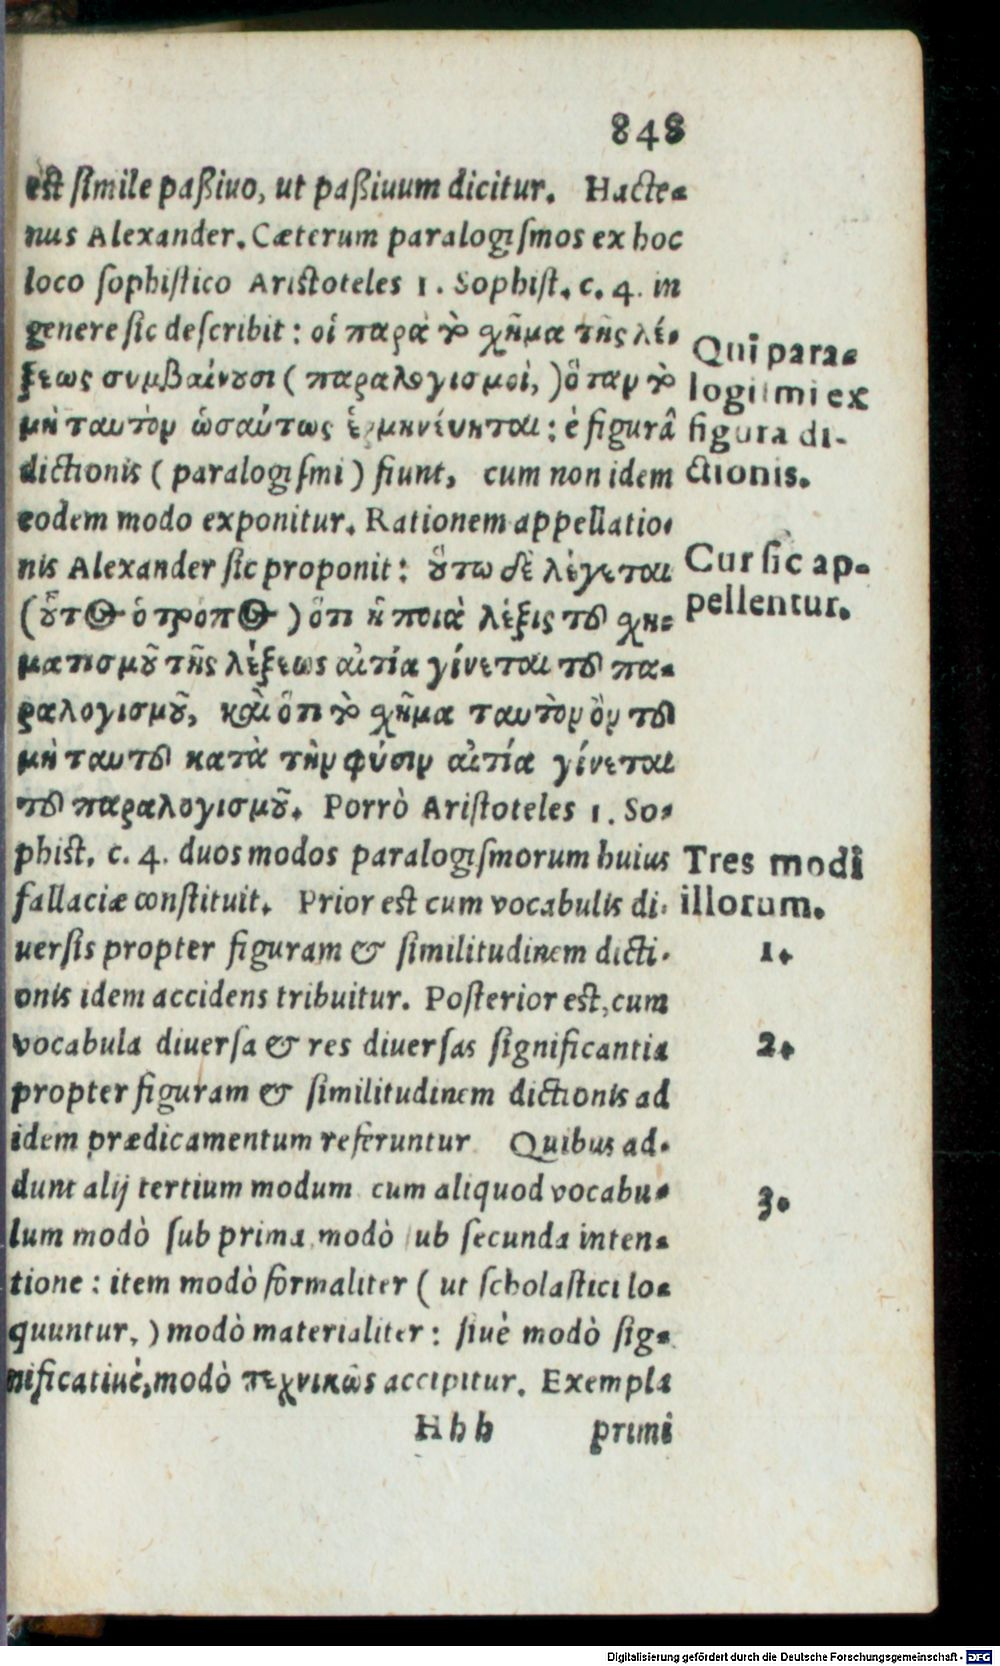 848
est simile paßiuo, ut paßiuum dicitur. Hacte-
nus Alexander. Cæterum paralogismos ex hoc
loco sophistico Aristoteles 1. Sophist. c. 4. in
genere sic describit: οἱ παρὰ τὸ χῆμα τῆς λέ-
ξεως συμβαίνουσι (παραλογισμοὶ,) ὅταν τὸ
μὴ ταυτὸν ὡσαύτως ἑρμηνεύηται: è figurâ
dictionis (paralogismi) fiunt, cum non idem
eodem modo exponitur. Rationem appellatio-
nis Alexander sic proponit: οὕτω δὲ λέγεται
(οὗτος ὁ τρόπος) ὅτι ἡ ποιὰ λέξις τοῦ χη-
ματισμοῦ τῆς λέξεως αἰτία γίνεται τοῦ πα-
ραλογισμοῦ, καὶ ὅτι τὸ χῆμα ταυτὸν ὂν τοῦ
μὴ ταυτοῦ κατὰ τὴν φύσιν αἰτία γίνεται
τοῦ παραλογισμοῦ. Porrò Aristoteles 1. So-
phist. c. 4. duos modos paralogismorum huius
fallaciæ constituit. Prior est cum vocabulis di-
uersis propter figuram & similitudinem dicti-
onis idem accidens tribuitur. Posterior est, cum
vocabula diuersa & res diuersas significantia
propter figuram & similitudinem dictionis ad
idem prædicamentum referuntur Quibus ad-
dunt alij tertium modum cum aliquod vocabu-
lum modò sub prima modò ub secunda inten-
tione: item modò formaliter (ut scholastici lo-
quuntur,) modò materialiter: siuè modò sig-
nificatiuè, modò τεχνικῶς accipitur. Exempla
Hhh primi
Qui para-
logismi ex
figura di-
ctionis.
Cur sic ap-
pellentur.
Tres modi
illorum.
1.
2.
3.
Digitalisierung gefördert durch die Deutsche Forschungsgemeinschaft - DFG